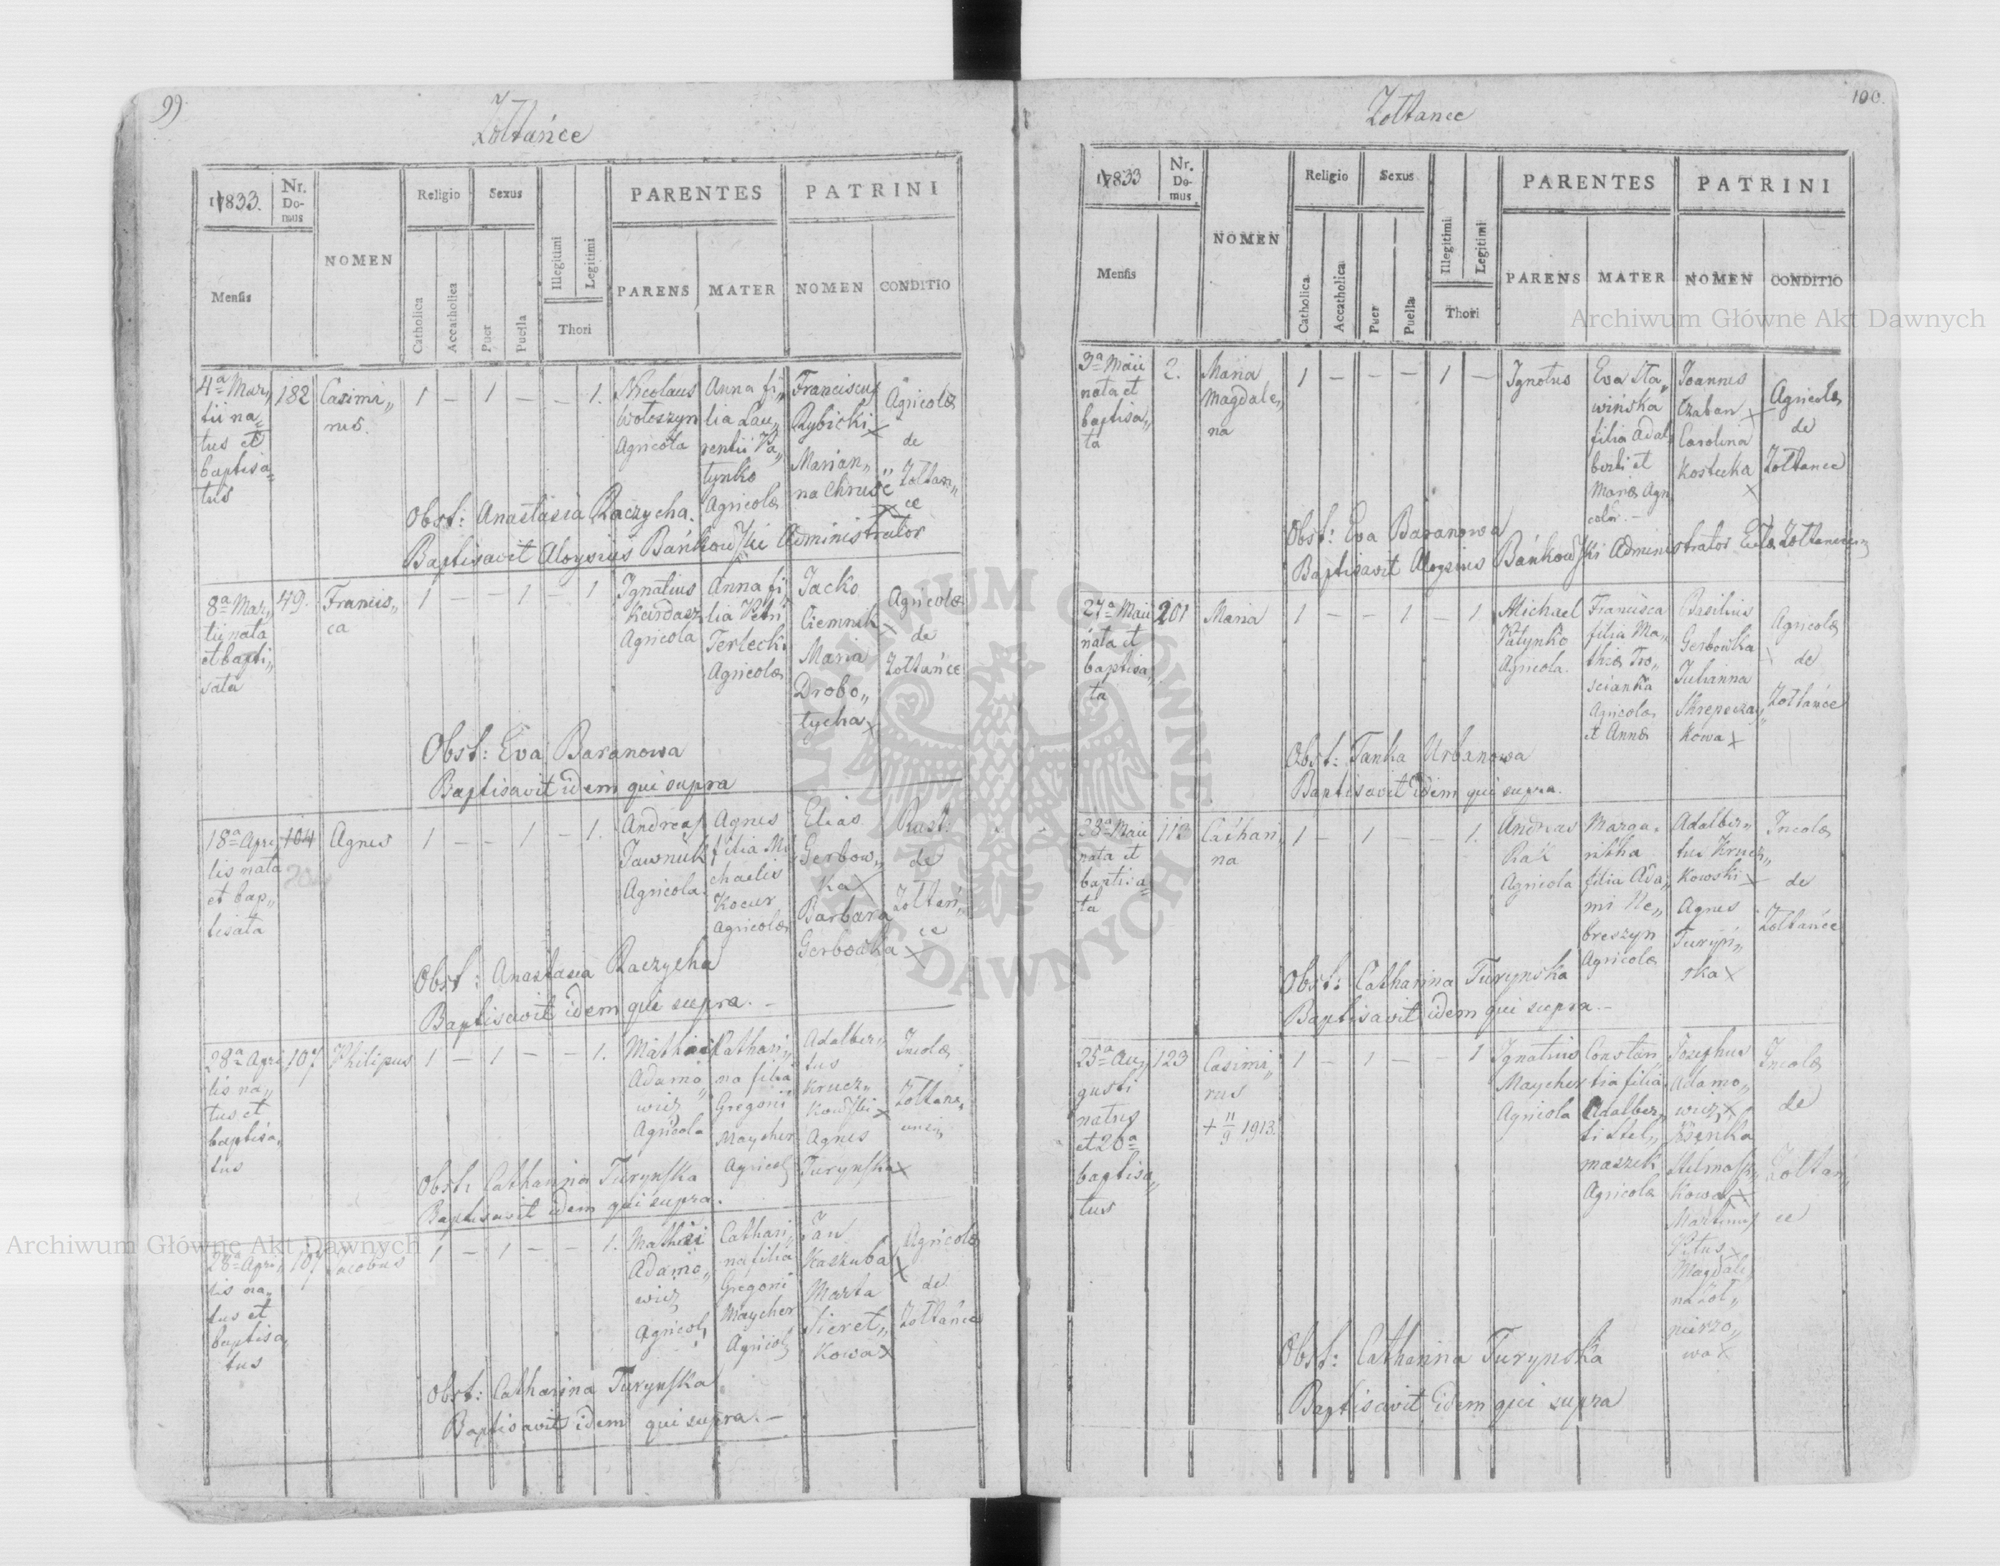 99.
Żółtańce
1833.
Nr. Domus
NOMEN
Religio
Sexus
PARENTES
PATRINI
Mensis
Catholica
Accatholica
Puer
Puella
Illegitimi
Legitimi
Thori
PARENS
MATER
NOMEN
CONDITIO
4a Mar„
tii na„
tus et
baptisa„
tus
182
Casimi„
rus.
1 — 1 — — 1.
Nicolaus
Wołoszyn
Agricola
Anna fi„
lia Lau„
rentii Pa„
tynko
Agricolae
Franciscus
Rybicki x
Marian„
na Chruść x
Agricolae
de
Żołtan„
ce
Obst: Anastasia Raczycha.
Baptisavit Aloysius Bańkowski Administrator
8a Mar„
tii nata
et bapti„
sata
49.
Francis„
ca
1 — — 1 — 1
Ignatius
Kardasz
Agricola
Anna fi„
lia Petri
Terlecki
Agricolae
Jacko
Ciemnik x
Maria
Drobo„
tycha x
Agricolae
de
Żołtańce
Obst: Eva Baranowa
Baptisavit idem qui supra
18a Apri„
lis nata
et bap„
tisata
104
Agnes
1 — — 1 — 1.
Andreas
Jawnuk
Agricola.
Agnes
filia Mi„
chaelis
Kocur
Agricolae
Elias
Gerbow„
ka x
Barbara
Gerbowka x
Rust:
de
Żołtań„
ce
Obst: Anastasia Raczycha
Baptisavit idem qui supra. —
28a Apri„
lis na„
tus et
baptisa„
tus
107
Philipus
1 — 1 — — 1.
Mathaei
Adamo„
wicz
Agricola
Cathari„
na filia
Gregorii
Maycher
Agricol
Adalber„
tus
Krucz„
kowski x
Agnes
Turynska x
Incolae
Żołtane„
Obst: Catharina Turynska
Baptisavit idem qui supra.
28a Apri„
lis na„
tus et
baptisa„
tus
107
Jacobus
1 — 1 — — 1.
Mathei
Adamo„
wicz
Agricol
Cathari„
na filia
Gregorii
Maycher
Agricol
Jan
Kaskuba x
Marta
Sieret„
kowa x
Agricolae
de
Żołtańce
Obst: Catharina Turynska
Baptisavit idem qui supra. —
100.
Żołtance
1833
Nr. Domus
NOMEN
Religio
Sexus
PARENTES
PATRINI
Mensis
Catholica
Accatholica
Puer
Puella
Illegitimi
Legitimi
Thori
PARENS
MATER
NOMEN
CONDITIO
3a Maii
nata et
baptisa„
ta
2.
Maria
Magdale„
na
1 — — — 1 —
Ignotus
Eva Sta„
wińska
filia Adal
berti et
Mariae Agri
colar. —
Joannes
Czaban x
Carolina
Kostecka x
Agricolae
de
Żołtance
Obst: Eva Baranowa
Baptisavit Aloysius Bańkowski Administrator
27a Maii
nata et
baptisa„
ta
201
Maria
1 — — 1 — 1.
Michael
Patynko
Agricola.
Francisca
filia Ma„
thiae Tro„
scianka
Agricolae
et Annae
Basilius
Gerbowka x
Julianna
Skrepeczay„
kowa x
Agricolae
de
Żołtańce
Obst: Tanka Urbanowa
Baptisavit idem qui supra.
28a Maii
nata et
baptisa„
ta
113
Cathari„
na
1 — 1 — — 1.
Andreas
Rak
Agricola
Marga„
ritha
filia Ada„
mi He„
breszyn
Agricolae
Adalber„
tus Krucz„
kowski x
Agnes
Turyń„
ska x
Incolae
de
Żołtańce
Obst: Catharina Turynska
Baptisavit idem qui supra. —
25a Au„
gusti
natus
et 26a
baptisa„
tus
123
Casimi„
rus
+ 11/9 1913.
1 — 1 — — 1
Ignatius
Maycher
Agricola
Constan„
tia filia
Adalber„
ti Stel„
maszek
Agricolae
Josephus
Adamo„
wicz x
Stelmasz„
kowa x
Martinus
Pitus x
Magdale
na Żoł„
nierzo„
wa x
Incolae
de
Żołtań„
ce
Obst: Catharina Turynska
Baptisavit idem qui supra
Archiwum Główne Akt Dawnych
Archiwum Główne Akt Dawnych
ARCHIWUM GŁÓWNE AKT DAWNYCH